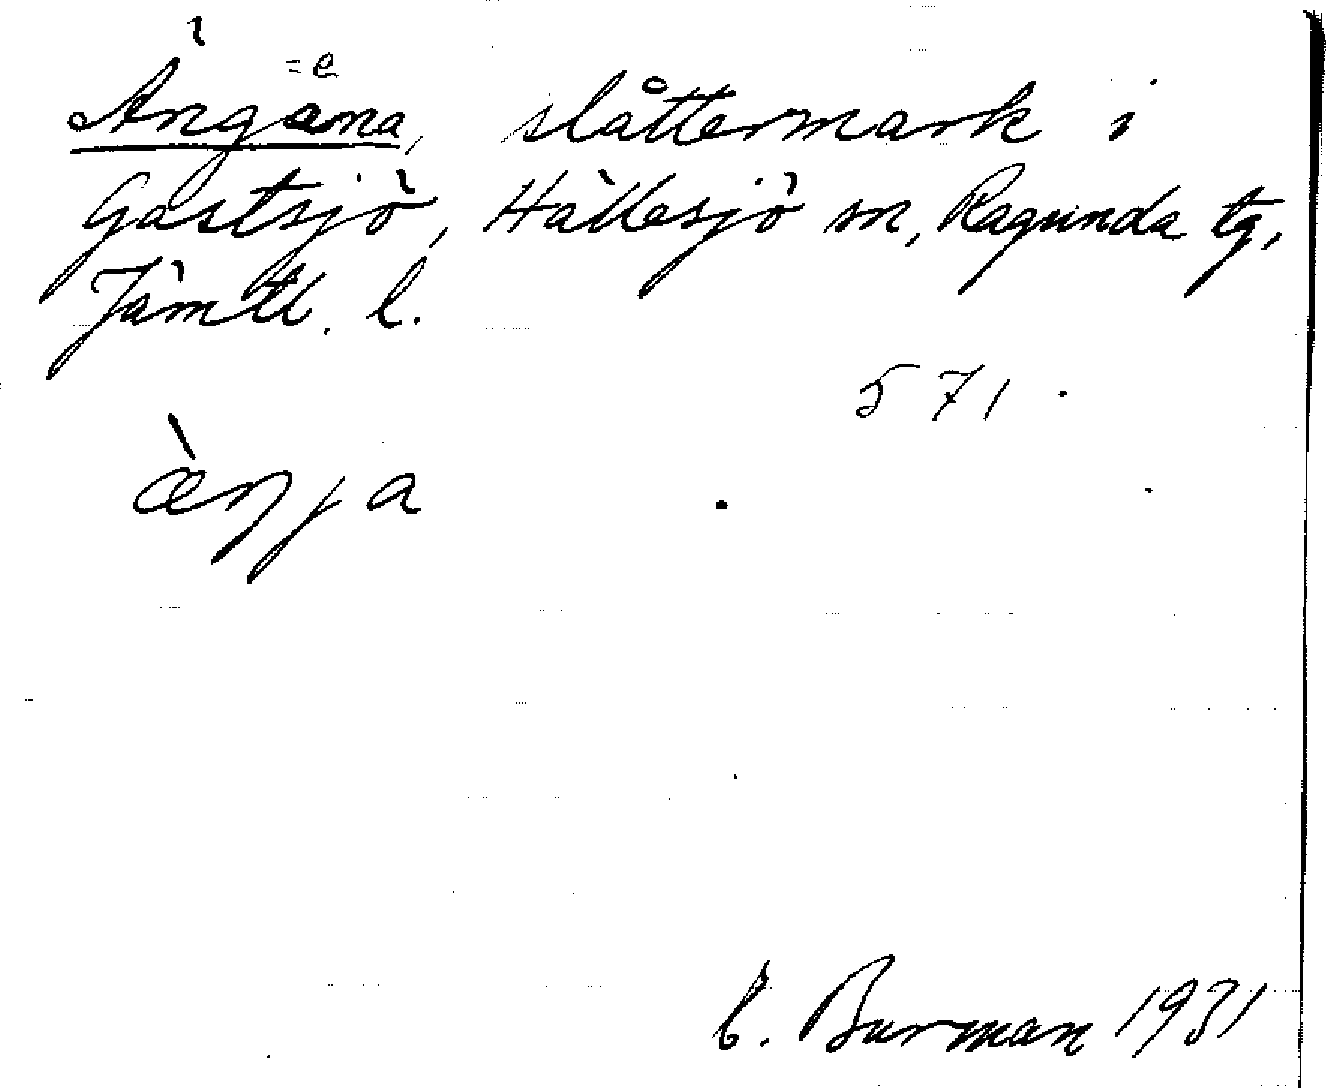 = e
Ängäna, slåttermark i
Gastsjö, Hällesjö sn, Ragunda tg,
Jämtl. l.
571.
æ̀ŋja
E. Burman 1931